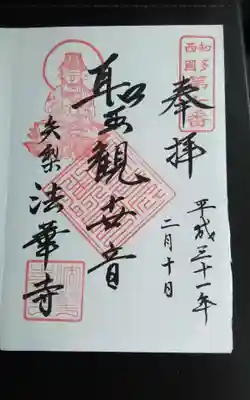 奉拝
平成三十一年
二月十日
知多
西國
聖觀世音
矢梨
法華寺